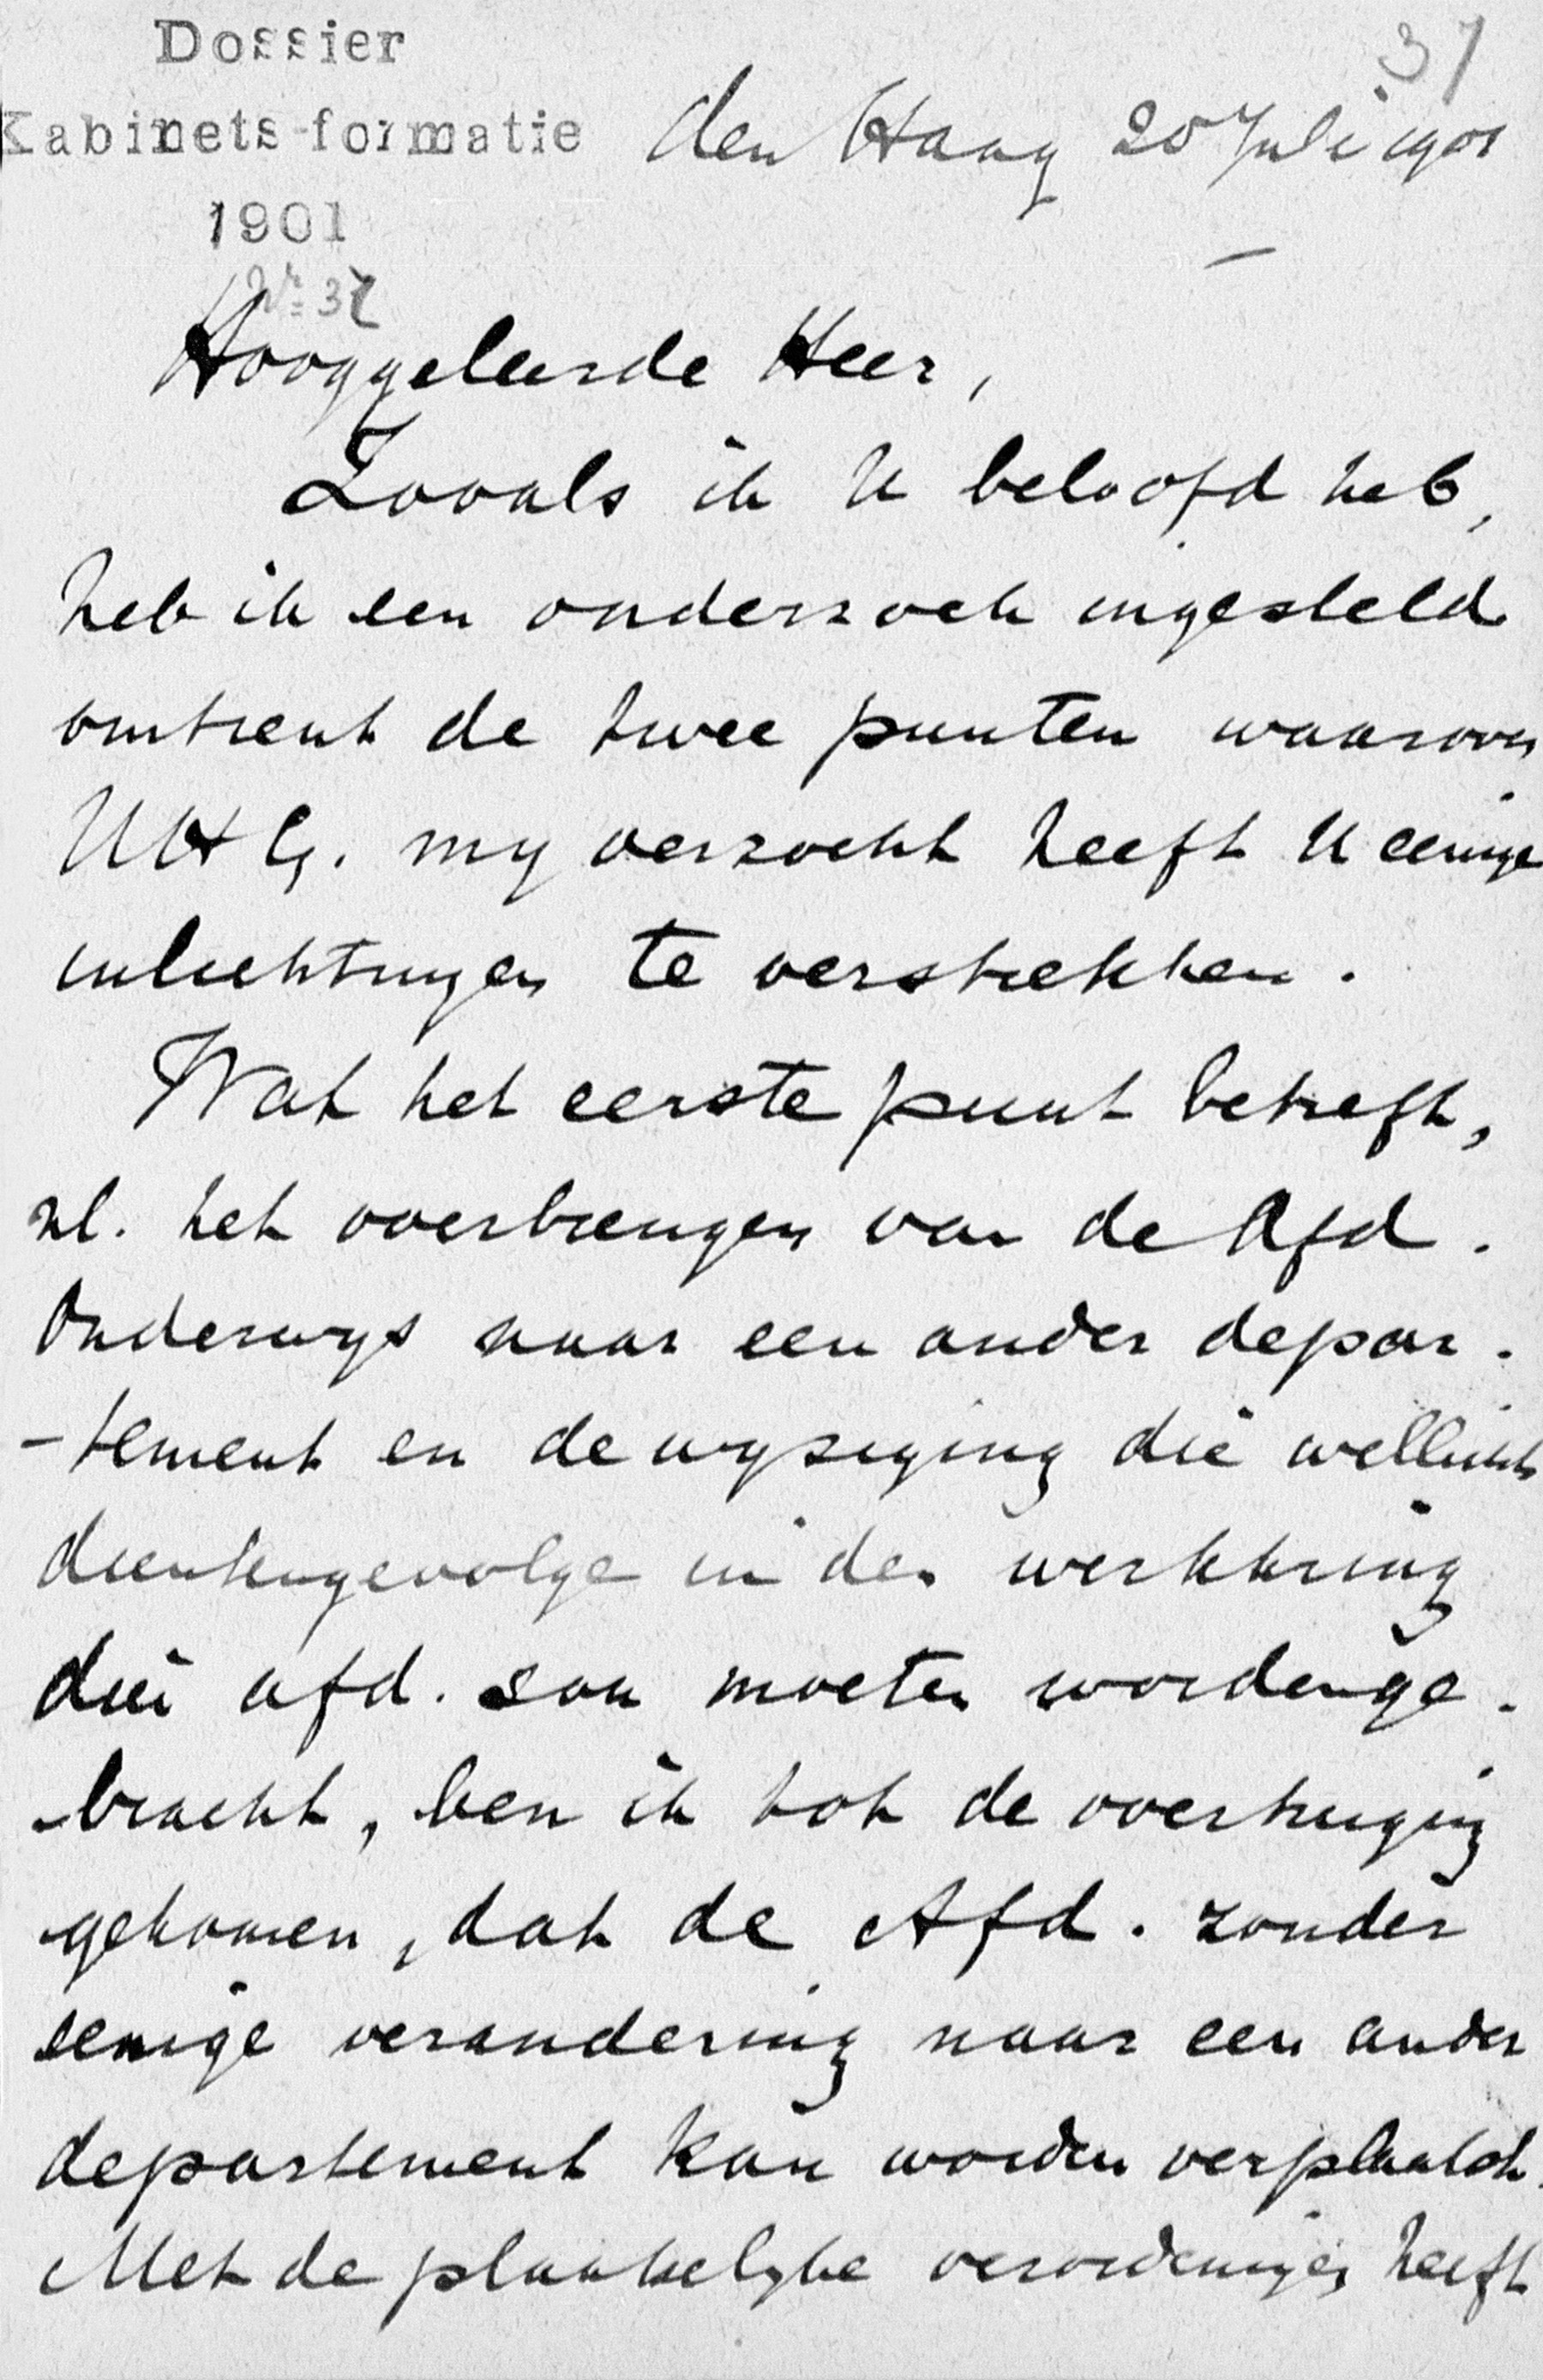 Dossier
37
Kabinets-formatie
den Haag 20 Juli 1901
1901
Nr. 37
Hooggeleerde Heer,
Zooals ik U beloofd heb,
heb ik een onderzoek ingesteld
omtrent de twee punten waarover
UHG. my verzocht heeft U eenige
inlichtingen te verstrekken.
Wat het eerste punt betreft,
nl. het overbrengen van de Afd.
Onderwys naar een ander depar-
-tement en de wyziging die wellicht
dientengevolge in den werkkring
dier afd. zou moeten worden ge-
-bracht, ben ik tot de overtuiging
gekomen, dat de Afd. zonder
eenige verandering naar een ander
departement kan worden verplaatst.
Met de plaatselyke verordeningen heeft